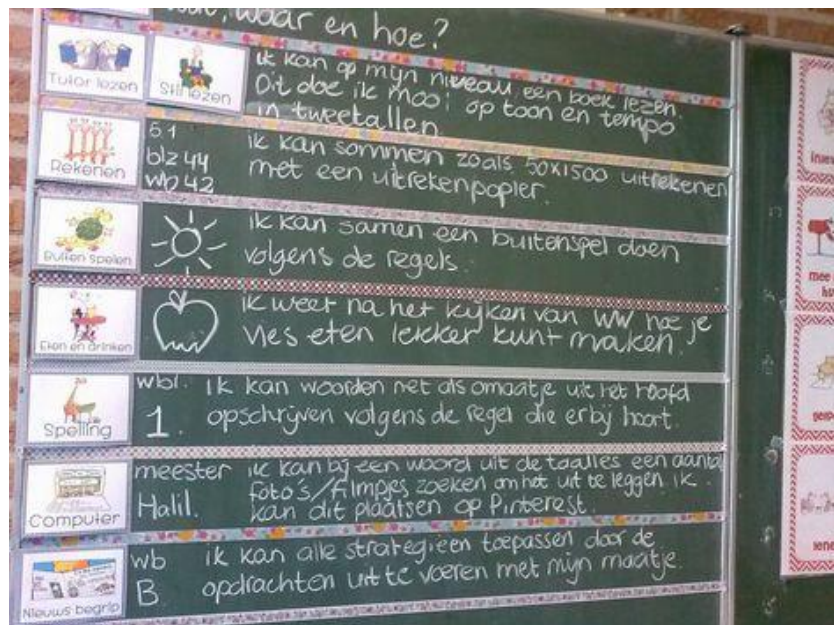 waar en hoe?
Tutor lezen
Stillezen
ik kan op mijn niveau een boek lezen.
Dit doe ik mooi op toon en tempo
in tweetallen
Rekenen
blz 44
wb 42
ik kan sommen zoals 50x1500 uitrekenen
met een uitrekenpapier.
Buiten spelen
ik kan samen een buitenspel doen
volgens de regels.
Eten en drinken
ik weet na het kijken van WW hoe je
vies eten lekker kunt maken.
Spelling
wbl.
1.
ik kan woorden net als omaatje uit het hoofd
opschrijven volgens de regel die erbij hoort.
Computer
meester
Halil.
ik kan bij een woord uit de taalles een aantal
foto's/filmpjes zoeken om het uit te leggen. ik
kan dit plaatsen op Pinterest.
Nieuws-begrip
wb
B
ik kan alle strategieën toepassen door de
opdrachten uit te voeren met mijn maatje.